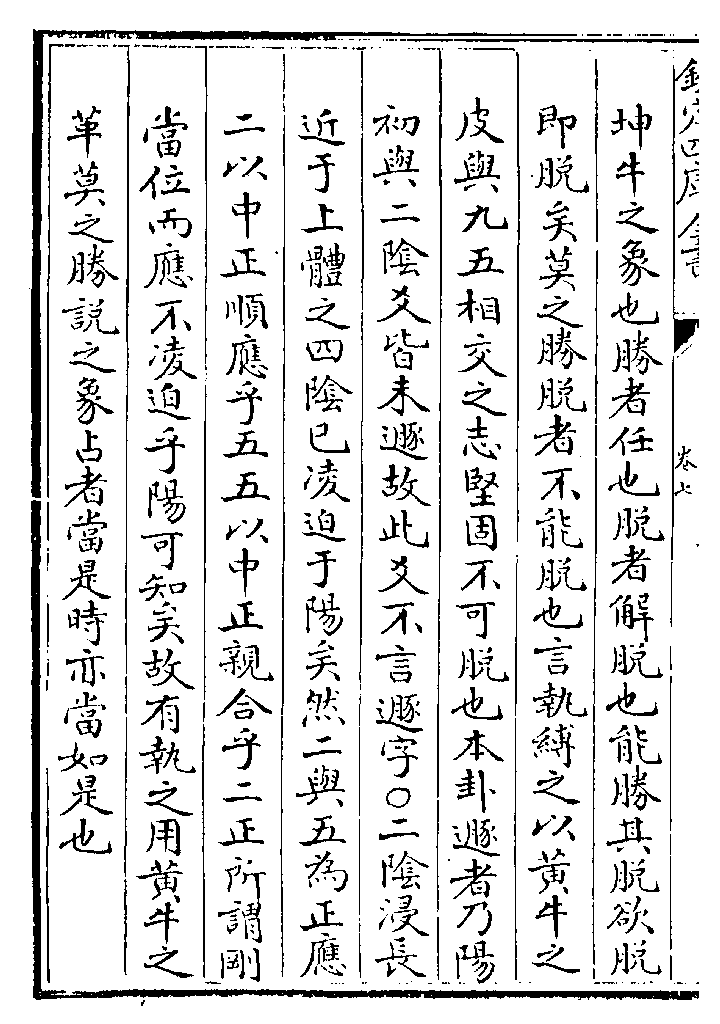 欽定四庫全書
卷七
坤牛之象也勝者任也脱者解脱也能勝其脱欲脱
即脱矣莫之勝脱者不能脱也言執縛之以黄牛之
皮與九五相交之志堅固不可脱也本卦遯者乃陽
初與二陰爻皆未遯故此爻不言遯字○二陰浸長
近于上體之四陰已凌迫于陽矣然二與五為正應
二以中正順應乎五五以中正親合乎二正所謂剛
當位而應不凌迫乎陽可知矣故有執之用黄牛之
革莫之勝説之象占者當是時亦當如是也